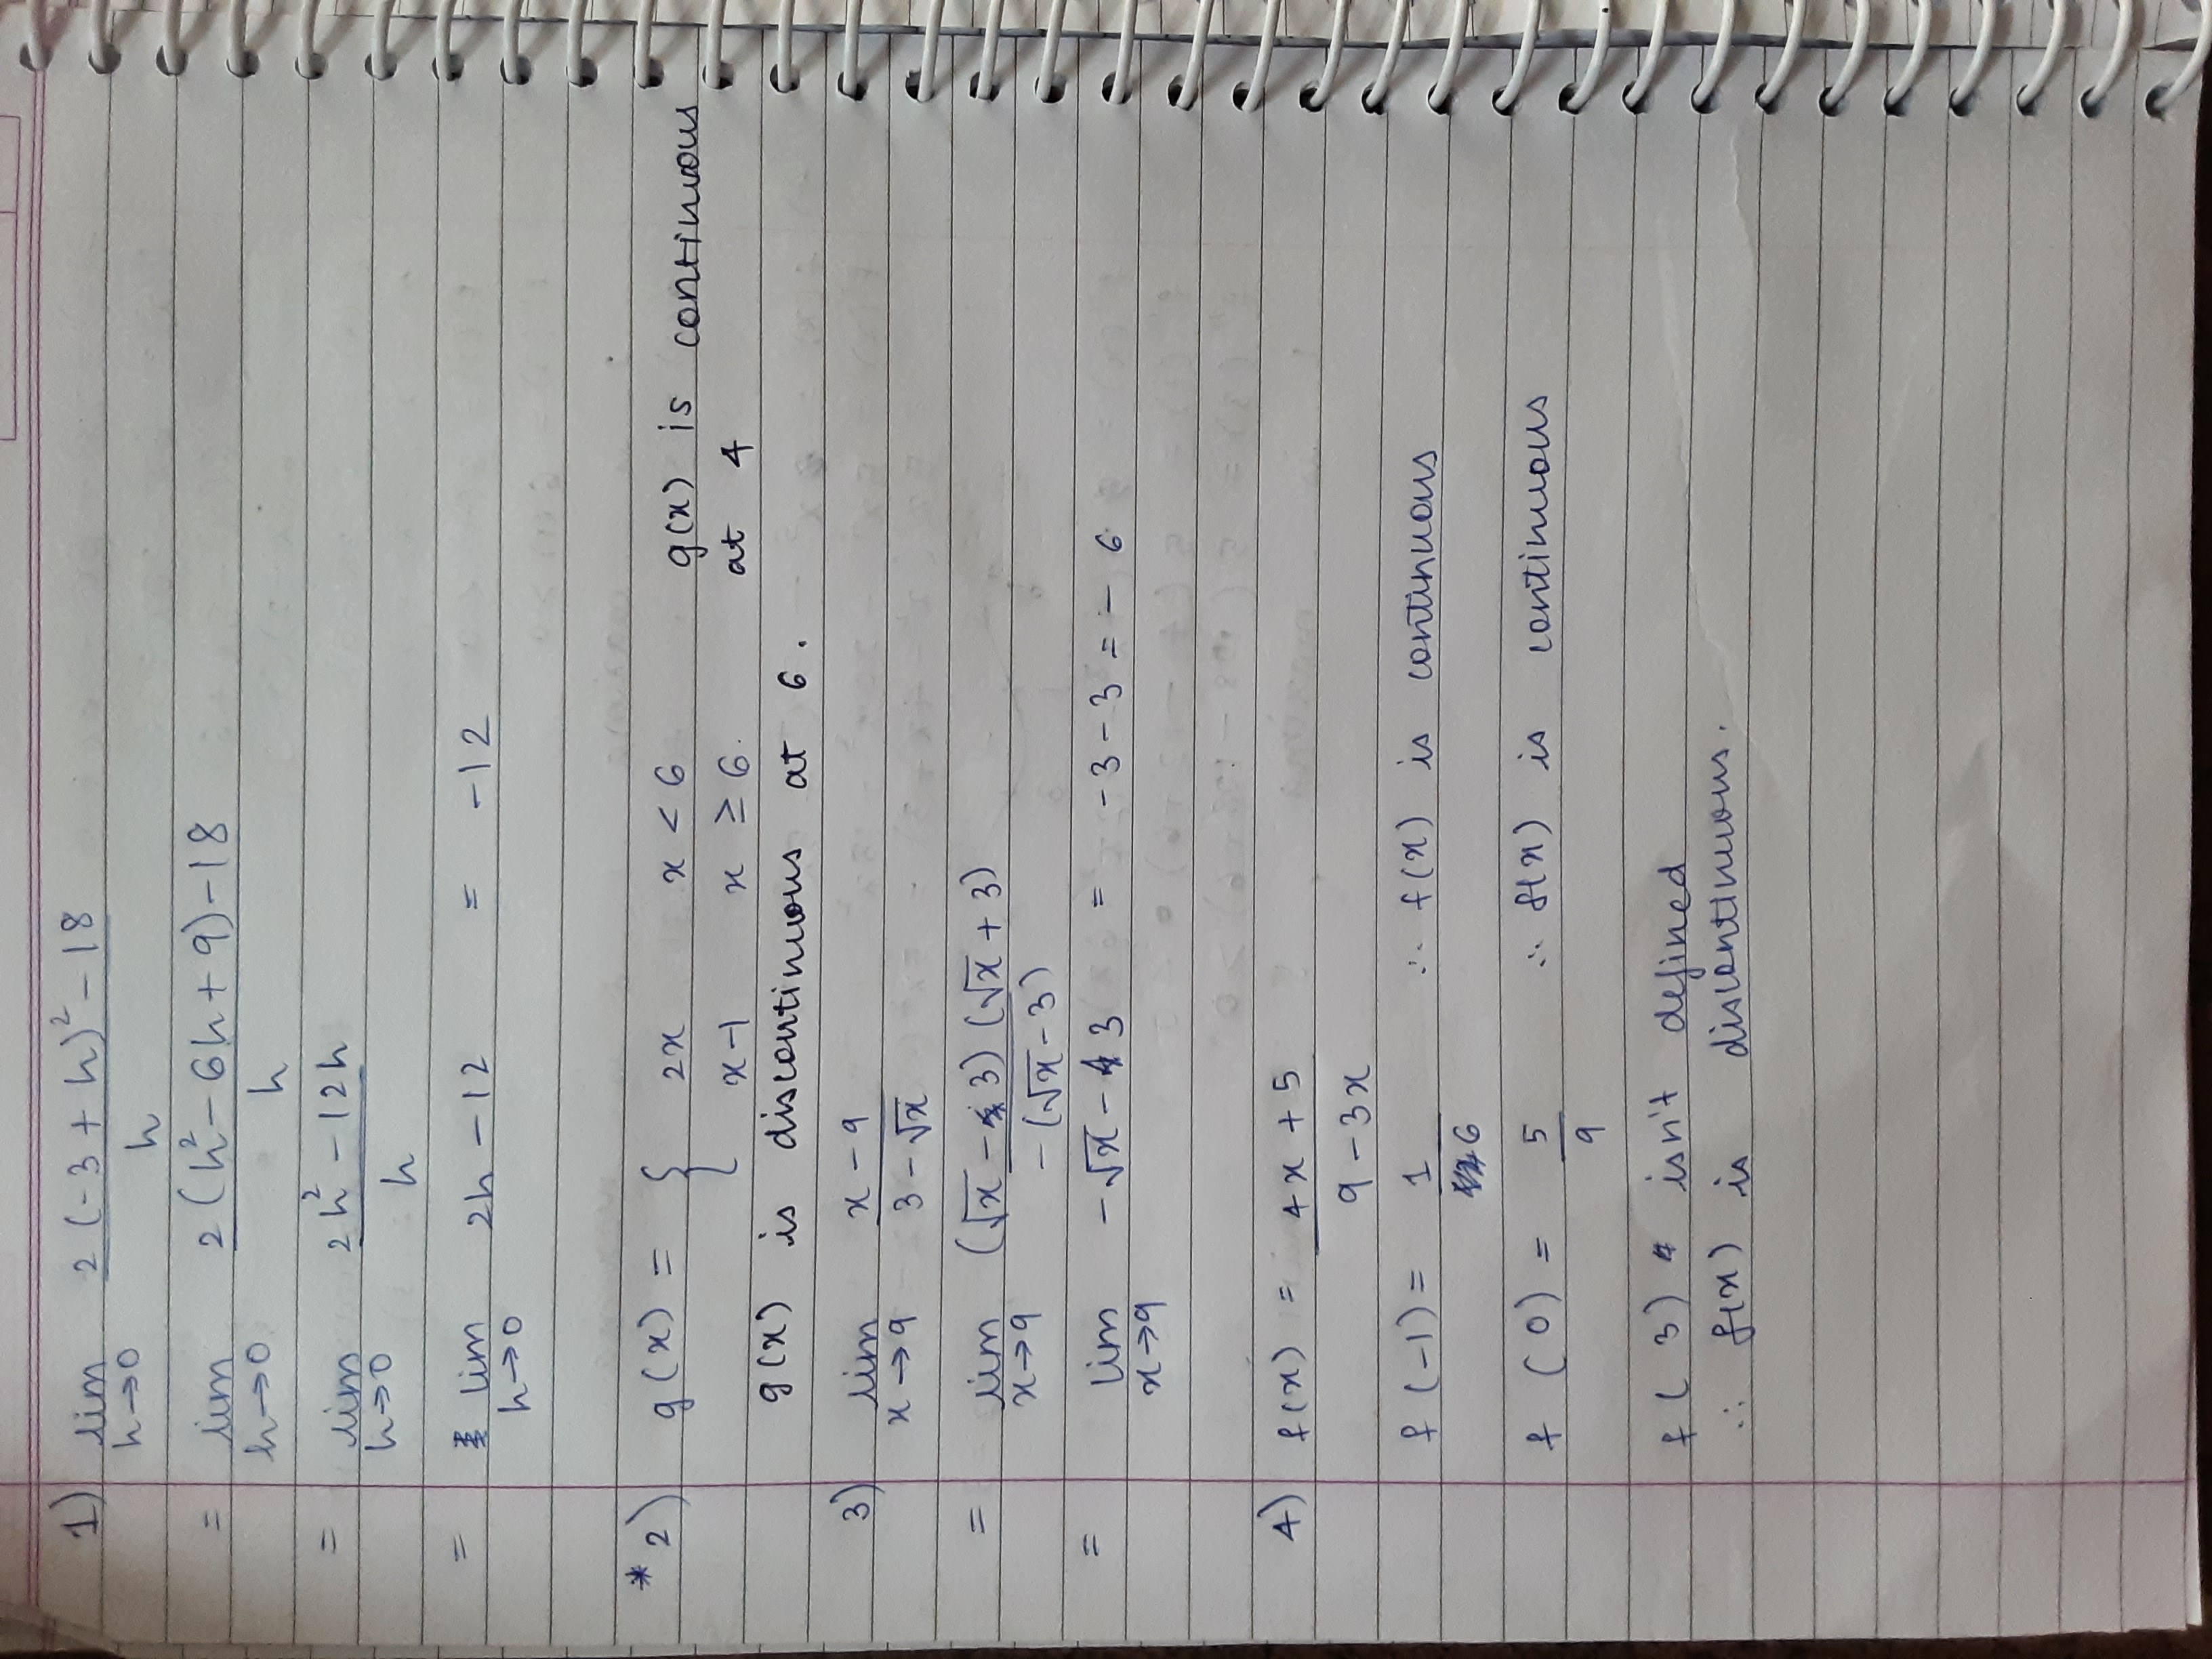 1) lim h→0 2(-3+h)² - 18 / h
= lim h→0 2(h² - 6h + 9) - 18 / h
= lim h→0 2h² - 12h / h
= lim h→0 2h - 12 = -12
* 2) g(x) = { 2x x < 6 g(x) is continuous
x-1 x ≥ 6. at 4
g(x) is discontinuous at 6.
3) lim x→9 x - 9 / 3 - √x
= lim x→9 (√x - 3)(√x + 3) / -(√x - 3)
= lim x→9 -√x - 3 = -3 - 3 = - 6
4) f(x) = 4x + 5 / 9 - 3x
f(-1) = 1 / 6 ∴ f(x) is continuous
f(0) = 5 / 9 ∴ f(x) is continuous
f(3) isn't defined
∴ f(x) is discontinuous.